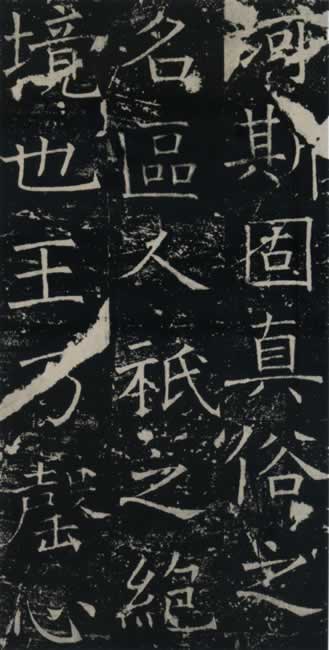 河斯固真俗之
名區人祇之絕
境也王乃罄心